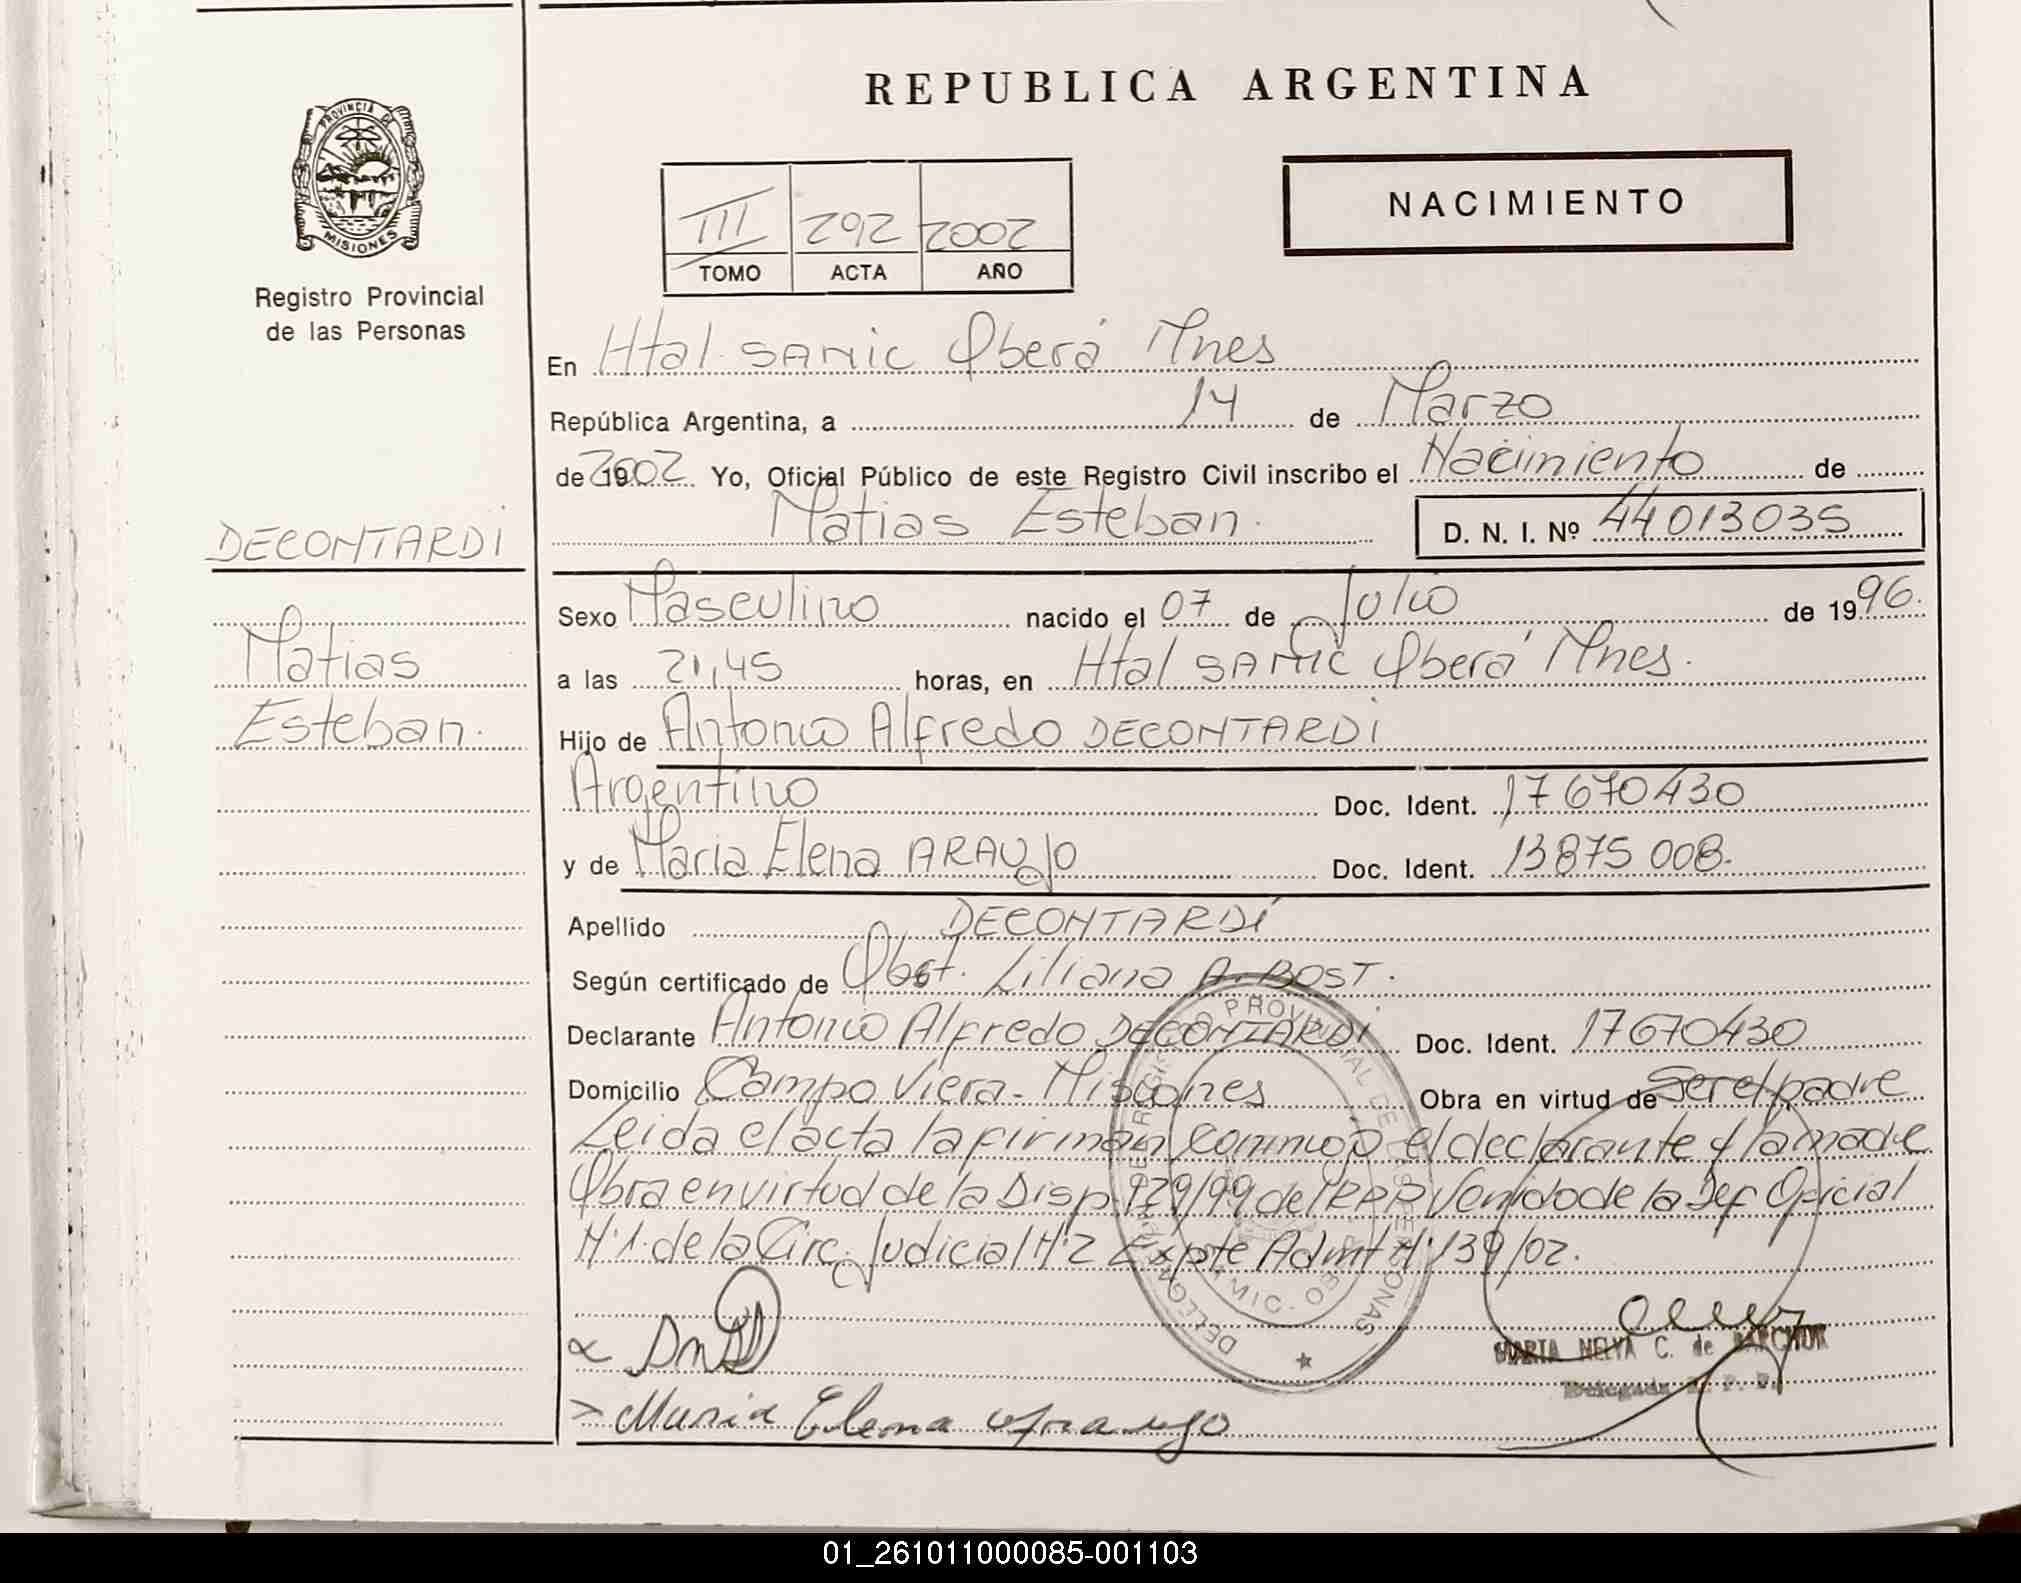 REPUBLICA ARGENTINA
PROVINCIA DE
MISIONES
Registro Provincial
de las Personas
NACIMIENTO
III 292 2002
TOMO ACTA AÑO
En Htal. SAMIC Oberá Mnes
República Argentina, a 14 de Marzo
de 2002 Yo, Oficial Público de este Registro Civil inscribo el Nacimiento de
Matias Esteban. D. N. I. Nº 44013035
DECONTARDI
Matias
Esteban.
Sexo Masculino nacido el 07 de Julio de 1996.
a las 21,45 horas, en Htal SAMIC Oberá Mnes.
Hijo de Antonio Alfredo DECONTARDI
Argentino Doc. Ident. 17670430
y de Maria Elena ARAUJO Doc. Ident. 13875008.
Apellido DECONTARDI
Según certificado de Obst. Liliana A. BOST.
Declarante Antonio Alfredo DECONTARDI Doc. Ident. 17670430
Domicilio Campo Viera - Misiones Obra en virtud de ser el padre
Leida el acta la firman conmigo el declarante y la madre
Obra en virtud de la Disp. 179/99 del RPP Venido de la Def Oficial
N:1. de la Circ. Judicial N:2 Expte Admt N:139/02.
DELEGACION DE REGISTRO PROVINCIAL DE LAS PERSONAS
MARIA NELYA C. de
Delegada R. P. P.
Maria Elena Araujo
01_261011000085-001103